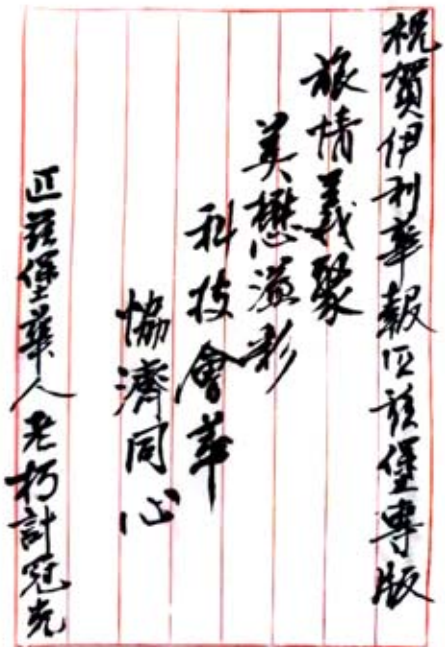 祝賀伊利華報匹茲堡專版
旅情義聚
美懋溢彩
科技會萃
恊濟同心
匹茲堡華人老朽計冠光